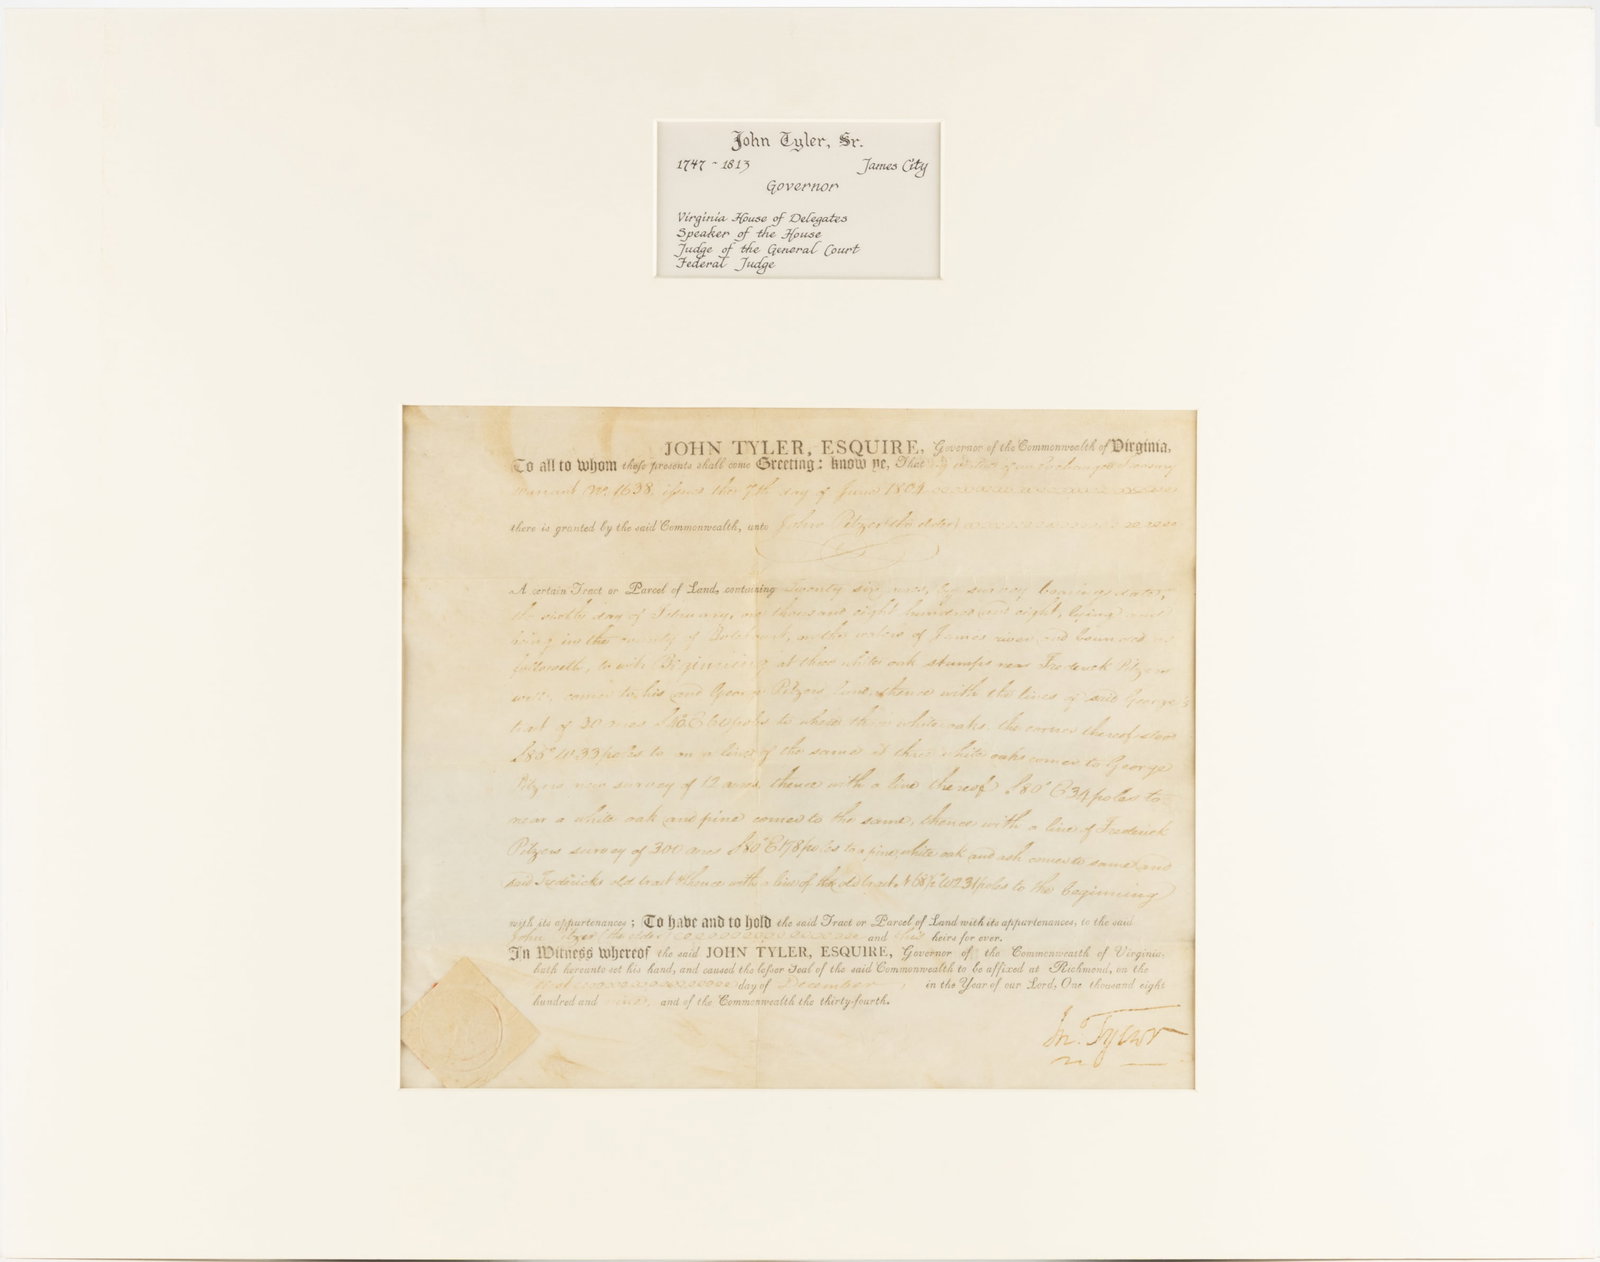 John Tyler, Sr.
1747 - 1813 James City
Governor
Virginia House of Delegates
Speaker of the House
Judge of the General Court
Federal Judge
JOHN TYLER, ESQUIRE, Governor of the Commonwealth of Virginia,
To all to whom these presents shall come Greeting: know ye, That by virtue of an Exchange Treasury
warrant No. 1638, issued the 7th day of June 1804
there is granted by the said Commonwealth, unto John Pitzer (the elder)
A certain Tract or Parcel of Land, containing Twenty six acres, by survey bearing date,
the sixth day of February, one thousand eight hundred and eight, lying and
being in the county of Botetourt, on the waters of James river and bounded as
followeth, to wit: Beginning at three white oak stumps near Frederick Pitzers
corner to his and George Pitzers land, thence with the lines of said George's
tract of 30 acres poles to where three white oaks the corner thereof stood
S85° W33 poles to on a line of the same at three white oaks corner to George
Pitzers new survey of 12 acres, thence with a line thereof S80° E34 poles to
near a white oak and pine corner to the same, thence with a line of Frederick
Pitzers survey of 300 acres S80° E178 poles to a pine, white oak and ash corner to same and
said Fredericks old tract & thence with a line of the old tract N68½° W231 poles to the beginning
with its appurtenances; To have and to hold the said Tract or Parcel of Land with its appurtenances, to the said
John Pitzer (the elder) and his heirs for ever.
In Witness whereof the said JOHN TYLER, ESQUIRE, Governor of the Commonwealth of Virginia,
hath hereunto set his hand, and caused the lesser Seal of the said Commonwealth to be affixed at Richmond, on the
first day of December, in the Year of our Lord, One thousand eight
hundred and nine, and of the Commonwealth the thirty-fourth.
Jno. Tyler